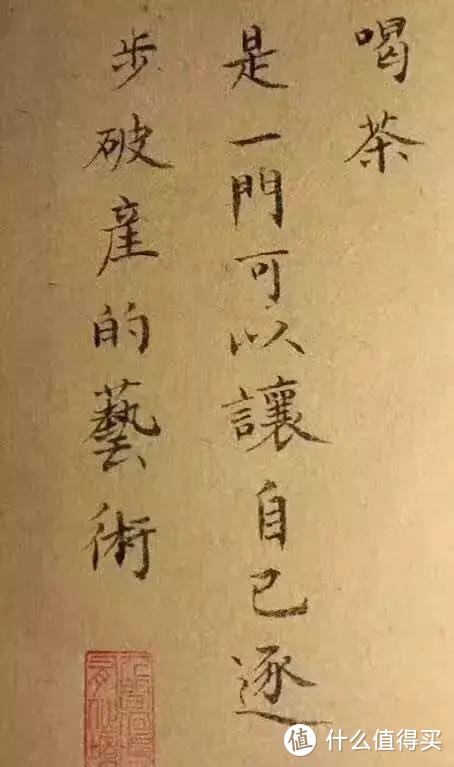 喝茶
是一門可以讓自己逐
步破產的藝術
值 什么值得买